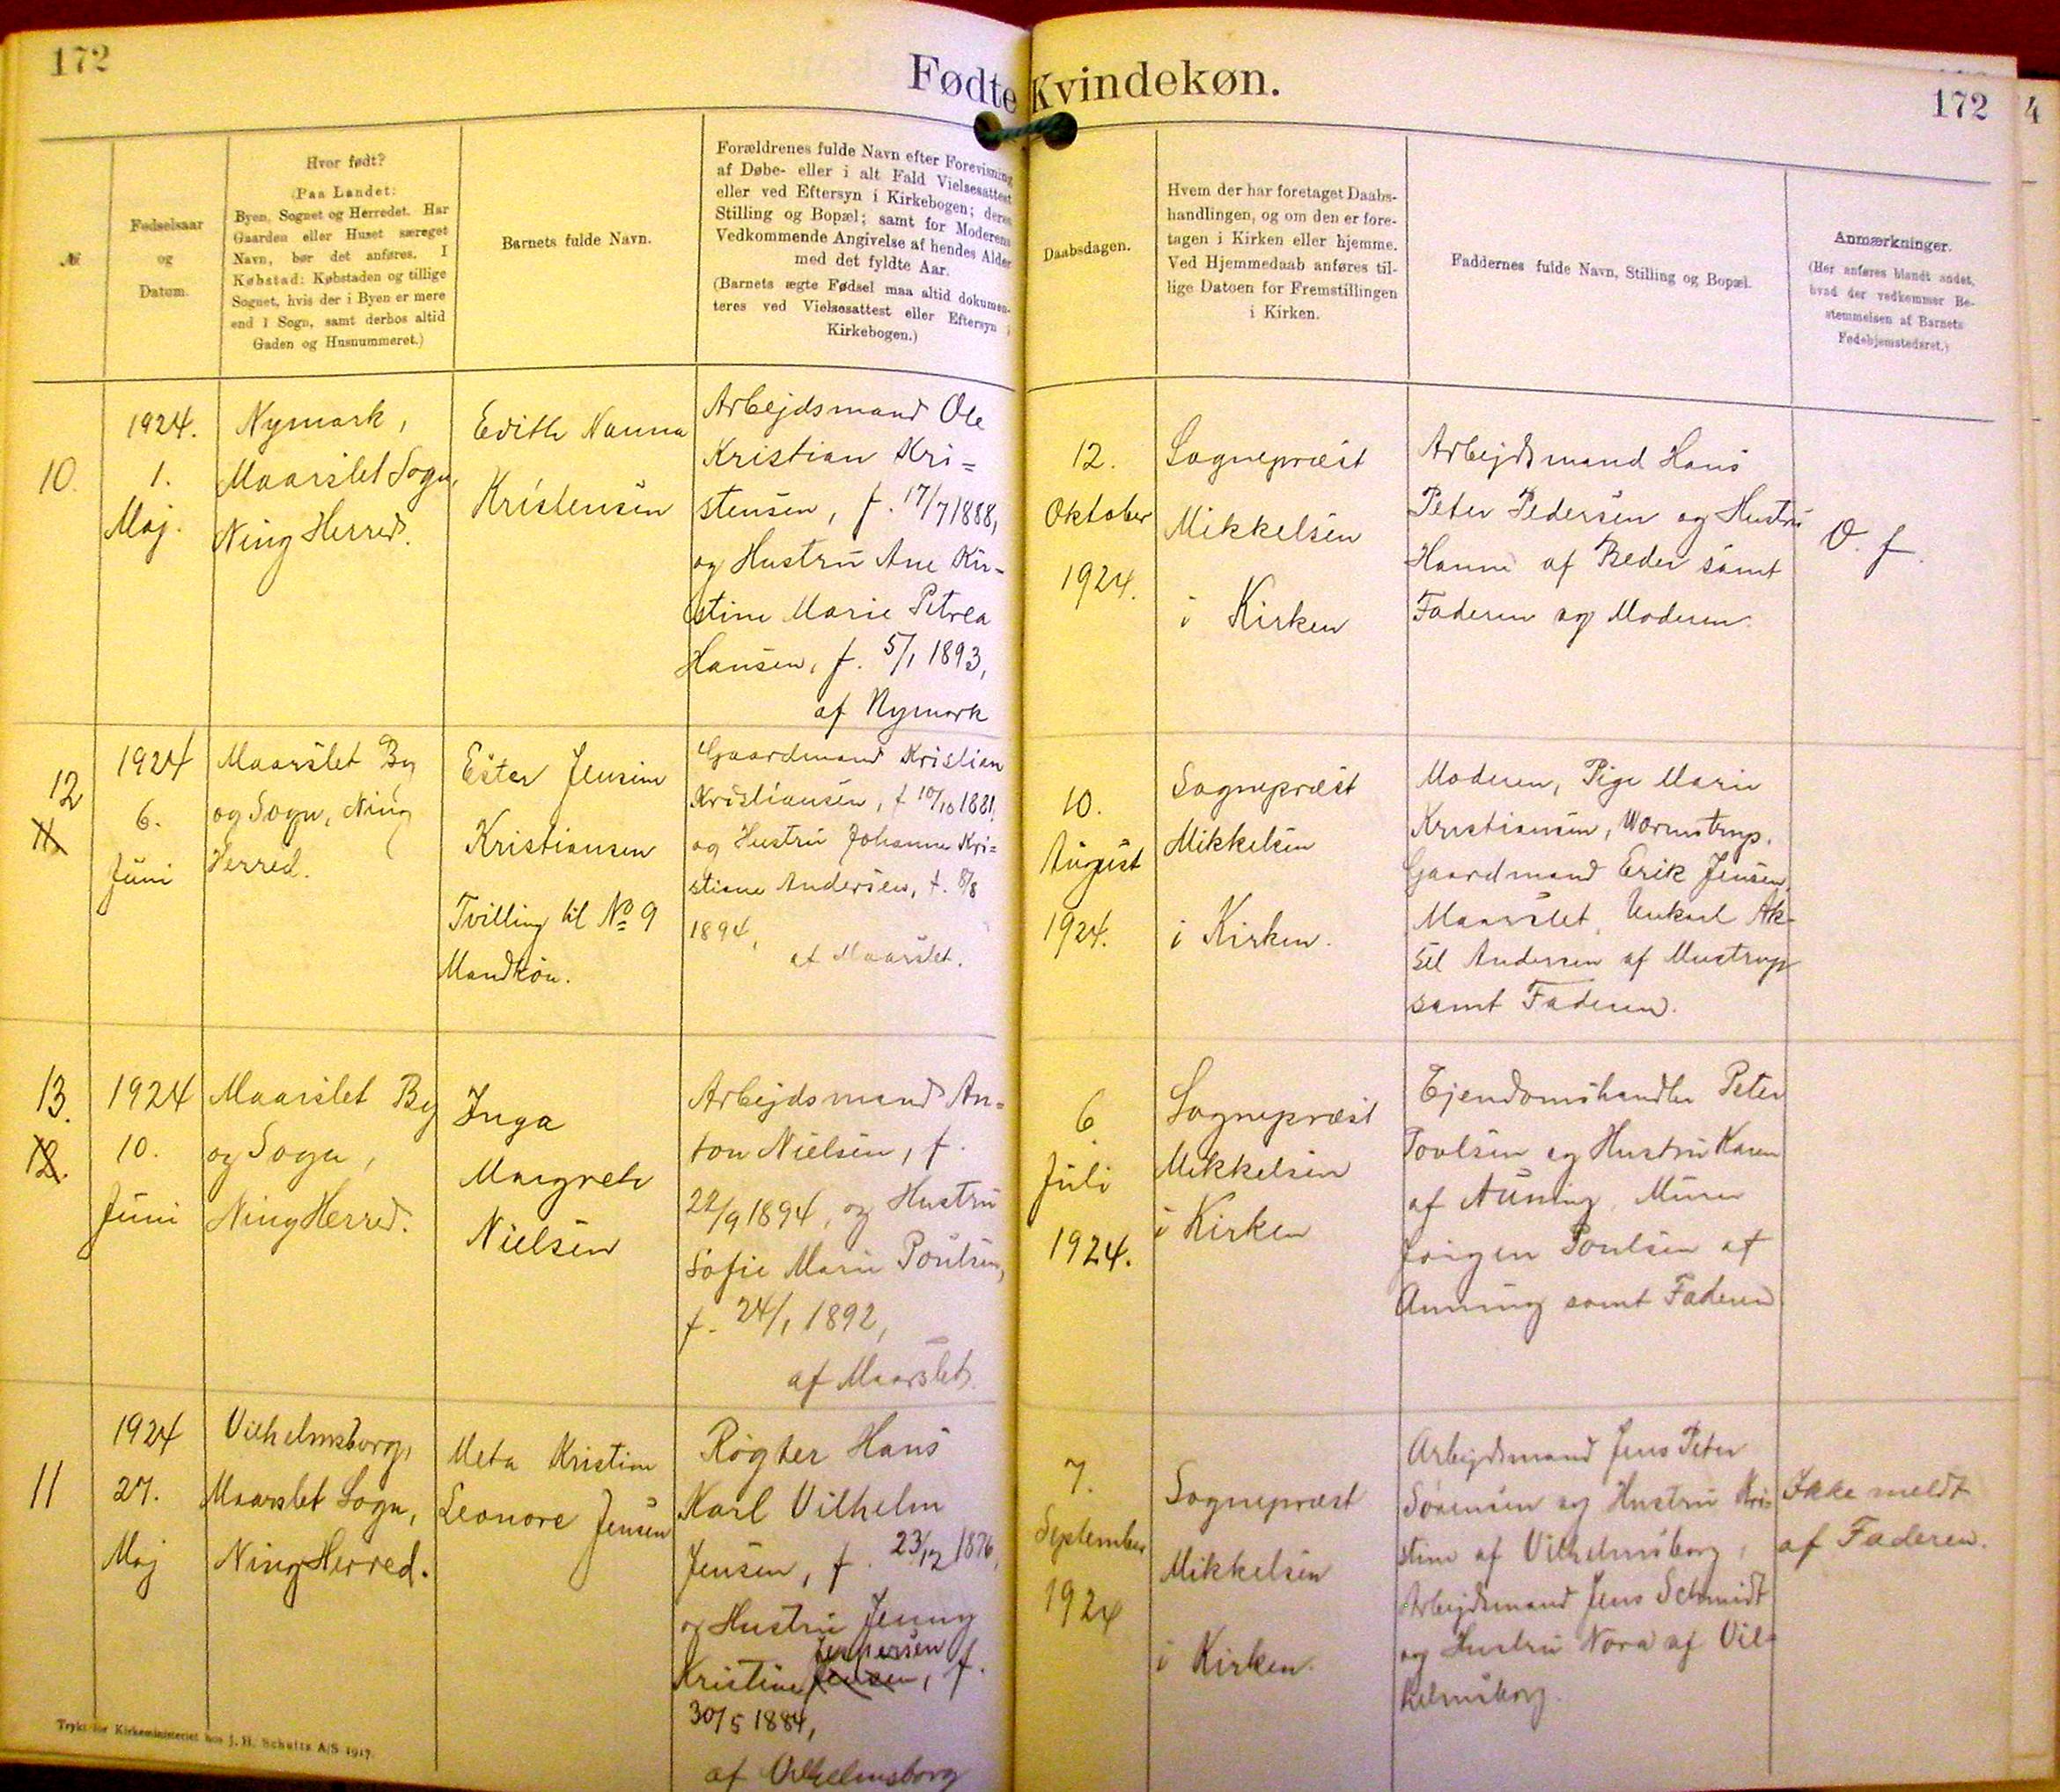 172
Fødte Kvindekøn.
172
4
№
Fødselsaar
og
Datum.
Hvor født?
(Paa Landet:
Byen, Sognet og Herredet. Har
Gaarden eller Huset særeget
Navn, bør det anføres. I
Købstad: Købstaden og tillige
Sognet, hvis der i Byen er mere
end 1 Sogn, samt derhos altid
Gaden og Husnummeret.)
Barnets fulde Navn.
Forældrenes fulde Navn efter Forevisning
af Døbe- eller i alt Fald Vielsesattest
eller ved Eftersyn i Kirkebogen; deres
Stilling og Bopæl; samt for Moderens
Vedkommende Angivelse af hendes Alder
med det fyldte Aar.
(Barnets ægte Fødsel maa altid dokumen-
teres ved Vielsesattest eller Eftersyn i
Kirkebogen.)
Daabsdagen.
Hvem der har foretaget Daabs-
handlingen, og om den er fore-
tagen i Kirken eller hjemme.
Ved Hjemmedaab anføres til-
lige Datoen for Fremstillingen
i Kirken.
Faddernes fulde Navn, Stilling og Bopæl.
Anmærkninger.
(Her anføres blandt andet,
hvad der vedkommer Be-
stemmelsen af Barnets
Fødehjemstedsret.)
10.
1924.
1.
Maj.
Nymark,
Maarslet Sogn,
Ning Herred.
Edith Nanna
Kristensen
Arbejdsmand Ole
Kristian Kri=
stensen, f. 17/7 1888,
og Hustru Ane Kir-
stine Marie Petrea
Hansen, f. 5/1 1893,
af Nymark
12.
Oktober
1924.
Sognepræst
Mikkelsen
i Kirken
Arbejdsmand Hans
Peter Pedersen og Hustru
Hanne af Beder samt
Faderen og Moderen.
O. f.
12
11
1924
6.
Juni
Maarslet By
og Sogn, Ning
Herred.
Ester Jensine
Kristiansen
Tvilling til No 9
Mandkøn.
Gaardmand Kristian
Kristiansen, f. 10/10 1881,
og Hustru Johanne Kri=
stiane Andersen, f. 8/8
1894,
af Maarslet.
10.
August
1924.
Sognepræst
Mikkelsen
i Kirken.
Moderen, Pige Marie
Kristiansen, Wormstrup,
Gaardmand Erik Jensen,
Maarslet, Ungkarl Ak-
sel Andersen af Mustrup
samt Faderen.
13.
12.
1924
10.
Juni
Maarslet By
og Sogn,
Ning Herred.
Inga
Margrete
Nielsen
Arbejdsmand An=
ton Nielsen, f.
22/9 1894, og Hustru
Sofie Marie Poulsen,
f. 24/1 1892,
af Maarslet.
6.
Juli
1924.
Sognepræst
Mikkelsen
i Kirken
Ejendomshandler Peter
Poulsen og Hustru Karen
af Auning, Murer
Jørgen Poulsen af
Auning samt Faderen.
11
1924
27.
Maj
Vilhelmsborg,
Maarslet Sogn,
Ning Herred.
Meta Kristine
Leonore Jensen
Røgter Hans
Karl Vilhelm
Jensen, f. 23/12 1876,
og Hustru Jenny
Jespersen
Kristine Jensen, f.
30/5 1884,
af Vilhelmsborg
7.
September
1924
Sognepræst
Mikkelsen
i Kirken.
Arbejdsmand Jens Peter
Sørensen og Hustru Kri=
stine af Vilhelmsborg,
Arbejdsmand Jens Schmidt
og Hustru Nora af Vil=
helmsborg.
Ikke meldt
af Faderen.
Trykt for Kirkeministeriet hos J. H. Schultz A/S 1917.